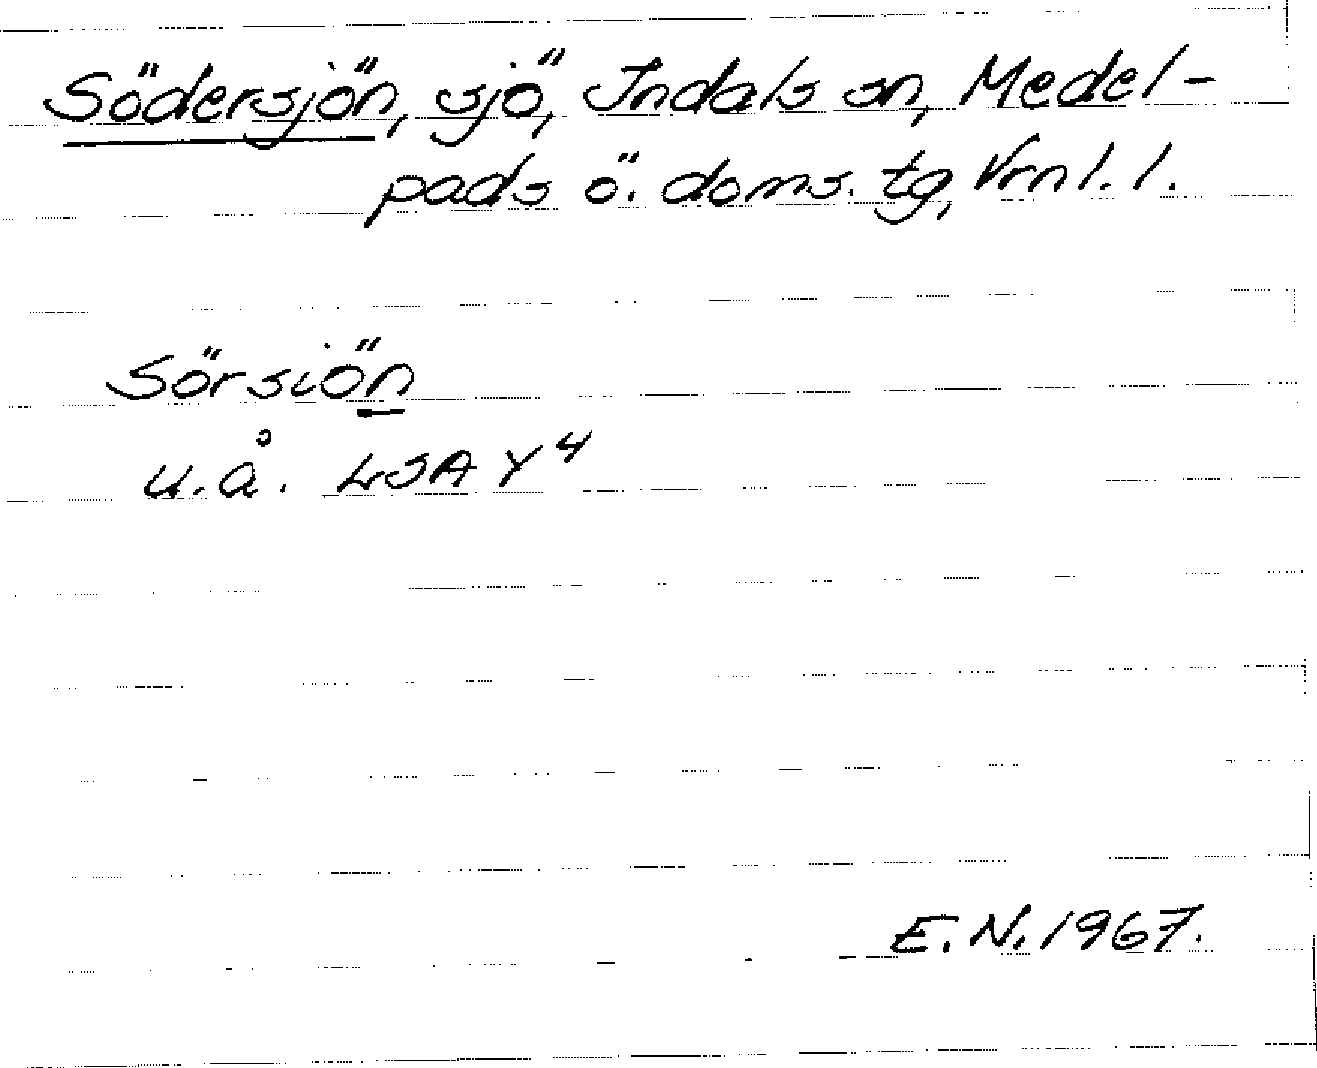 Södersjön, sjö, Indals sn, Medel-
pads ö. doms. tg, Vrnl. l.
Sörsiön
u.å. LSA Y4
E.N. 1967.